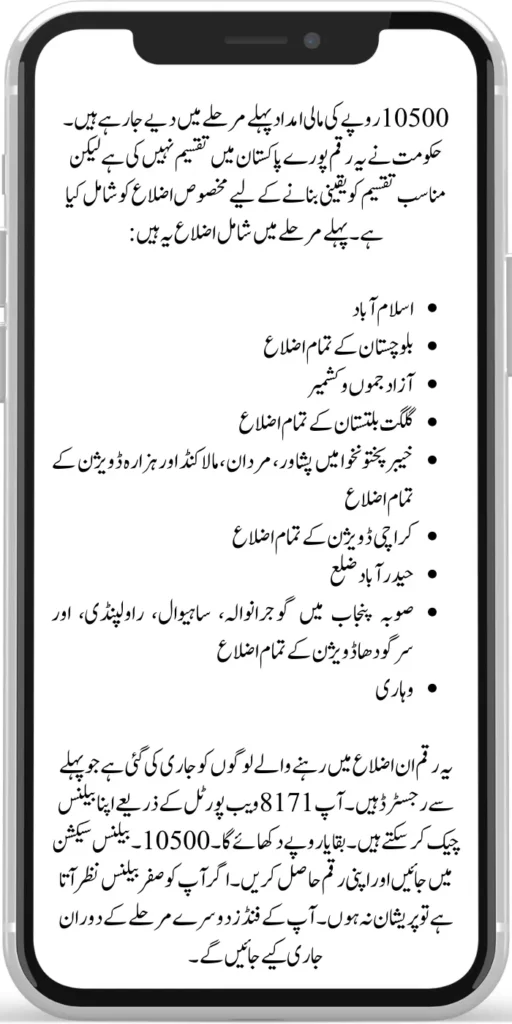 10500 روپے کی مالی امداد پہلے مرحلے میں دیے جا رہے ہیں۔
حکومت نے یہ رقم پورے پاکستان میں تقسیم نہیں کی ہے لیکن
مناسب تقسیم کو یقینی بنانے کے لیے مخصوص اضلاع کو شامل کیا
ہے۔ پہلے مرحلے میں شامل اضلاع یہ ہیں:
• اسلام آباد
• بلوچستان کے تمام اضلاع
• آزاد جموں و کشمیر
• گلگت بلتستان کے تمام اضلاع
• خیبر پختونخوا میں پشاور، مردان، مالاکنڈ اور ہزارہ ڈویژن کے
تمام اضلاع
• کراچی ڈویژن کے تمام اضلاع
• حیدر آباد ضلع
• صوبہ پنجاب میں گوجرانوالہ، ساہیوال، راولپنڈی، اور
سرگودھا ڈویژن کے تمام اضلاع
• وہاری
یہ رقم ان اضلاع میں رہنے والے لوگوں کو جاری کی گئی ہے جو پہلے
سے رجسٹرڈ ہیں۔ آپ 8171 ویب پورٹل کے ذریعے اپنا بیلنس
چیک کر سکتے ہیں۔ بقایا روپے دکھائے گا۔ 10500۔ بیلنس سیکشن
میں جائیں اور اپنی رقم حاصل کریں۔ اگر آپ کو صفر بیلنس نظر آتا
ہے تو پریشان نہ ہوں۔ آپ کے فنڈز دوسرے مرحلے کے دوران
جاری کیے جائیں گے۔